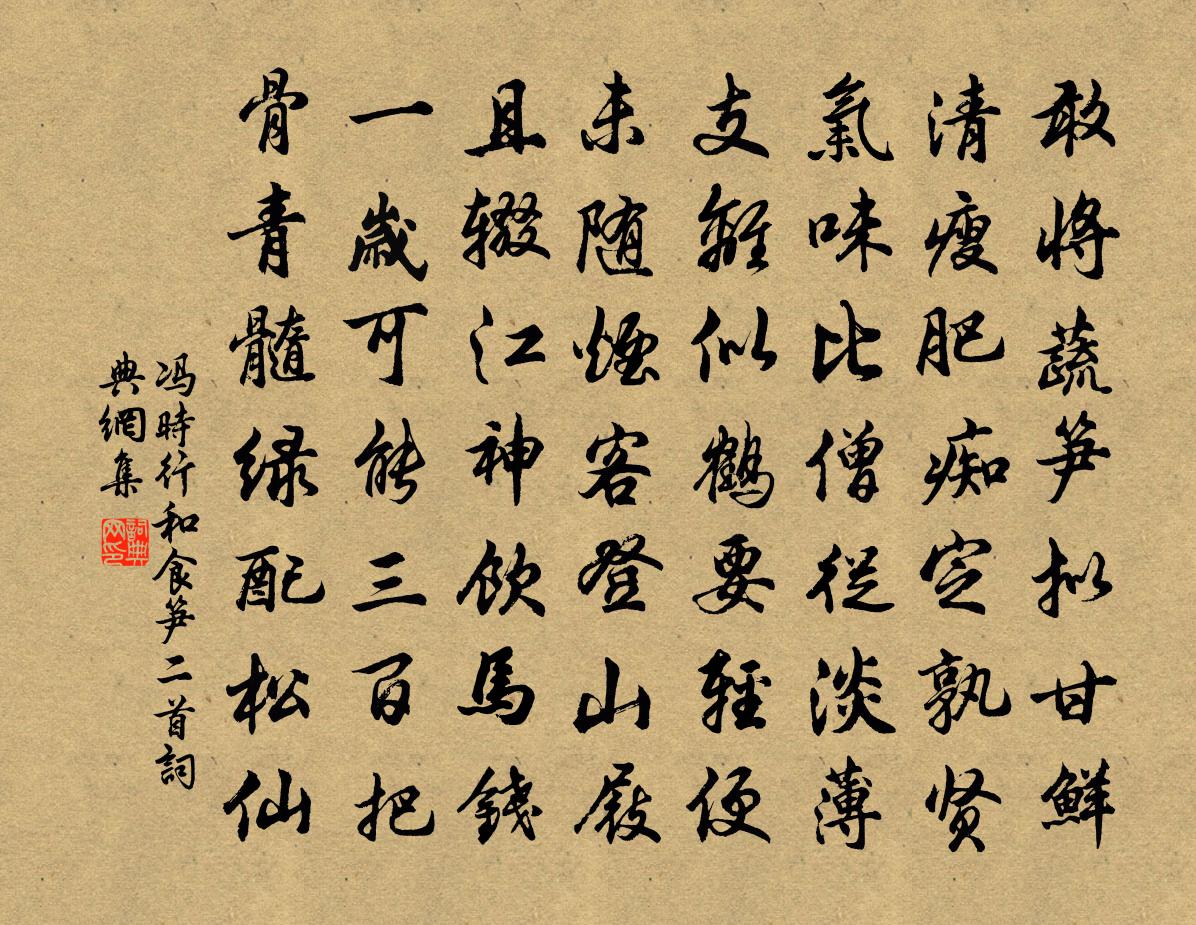 敢將蔬笋拟甘鮮
清瘦肥痴定孰贤
氣味比僧從淡薄
支離似鶴要輕便
未随煙客登山屐
且辍江神飲馬錢
一歲可能三百把
骨青髓绿配松仙
冯時行和食笋二首詞
典網集
詞典
网印